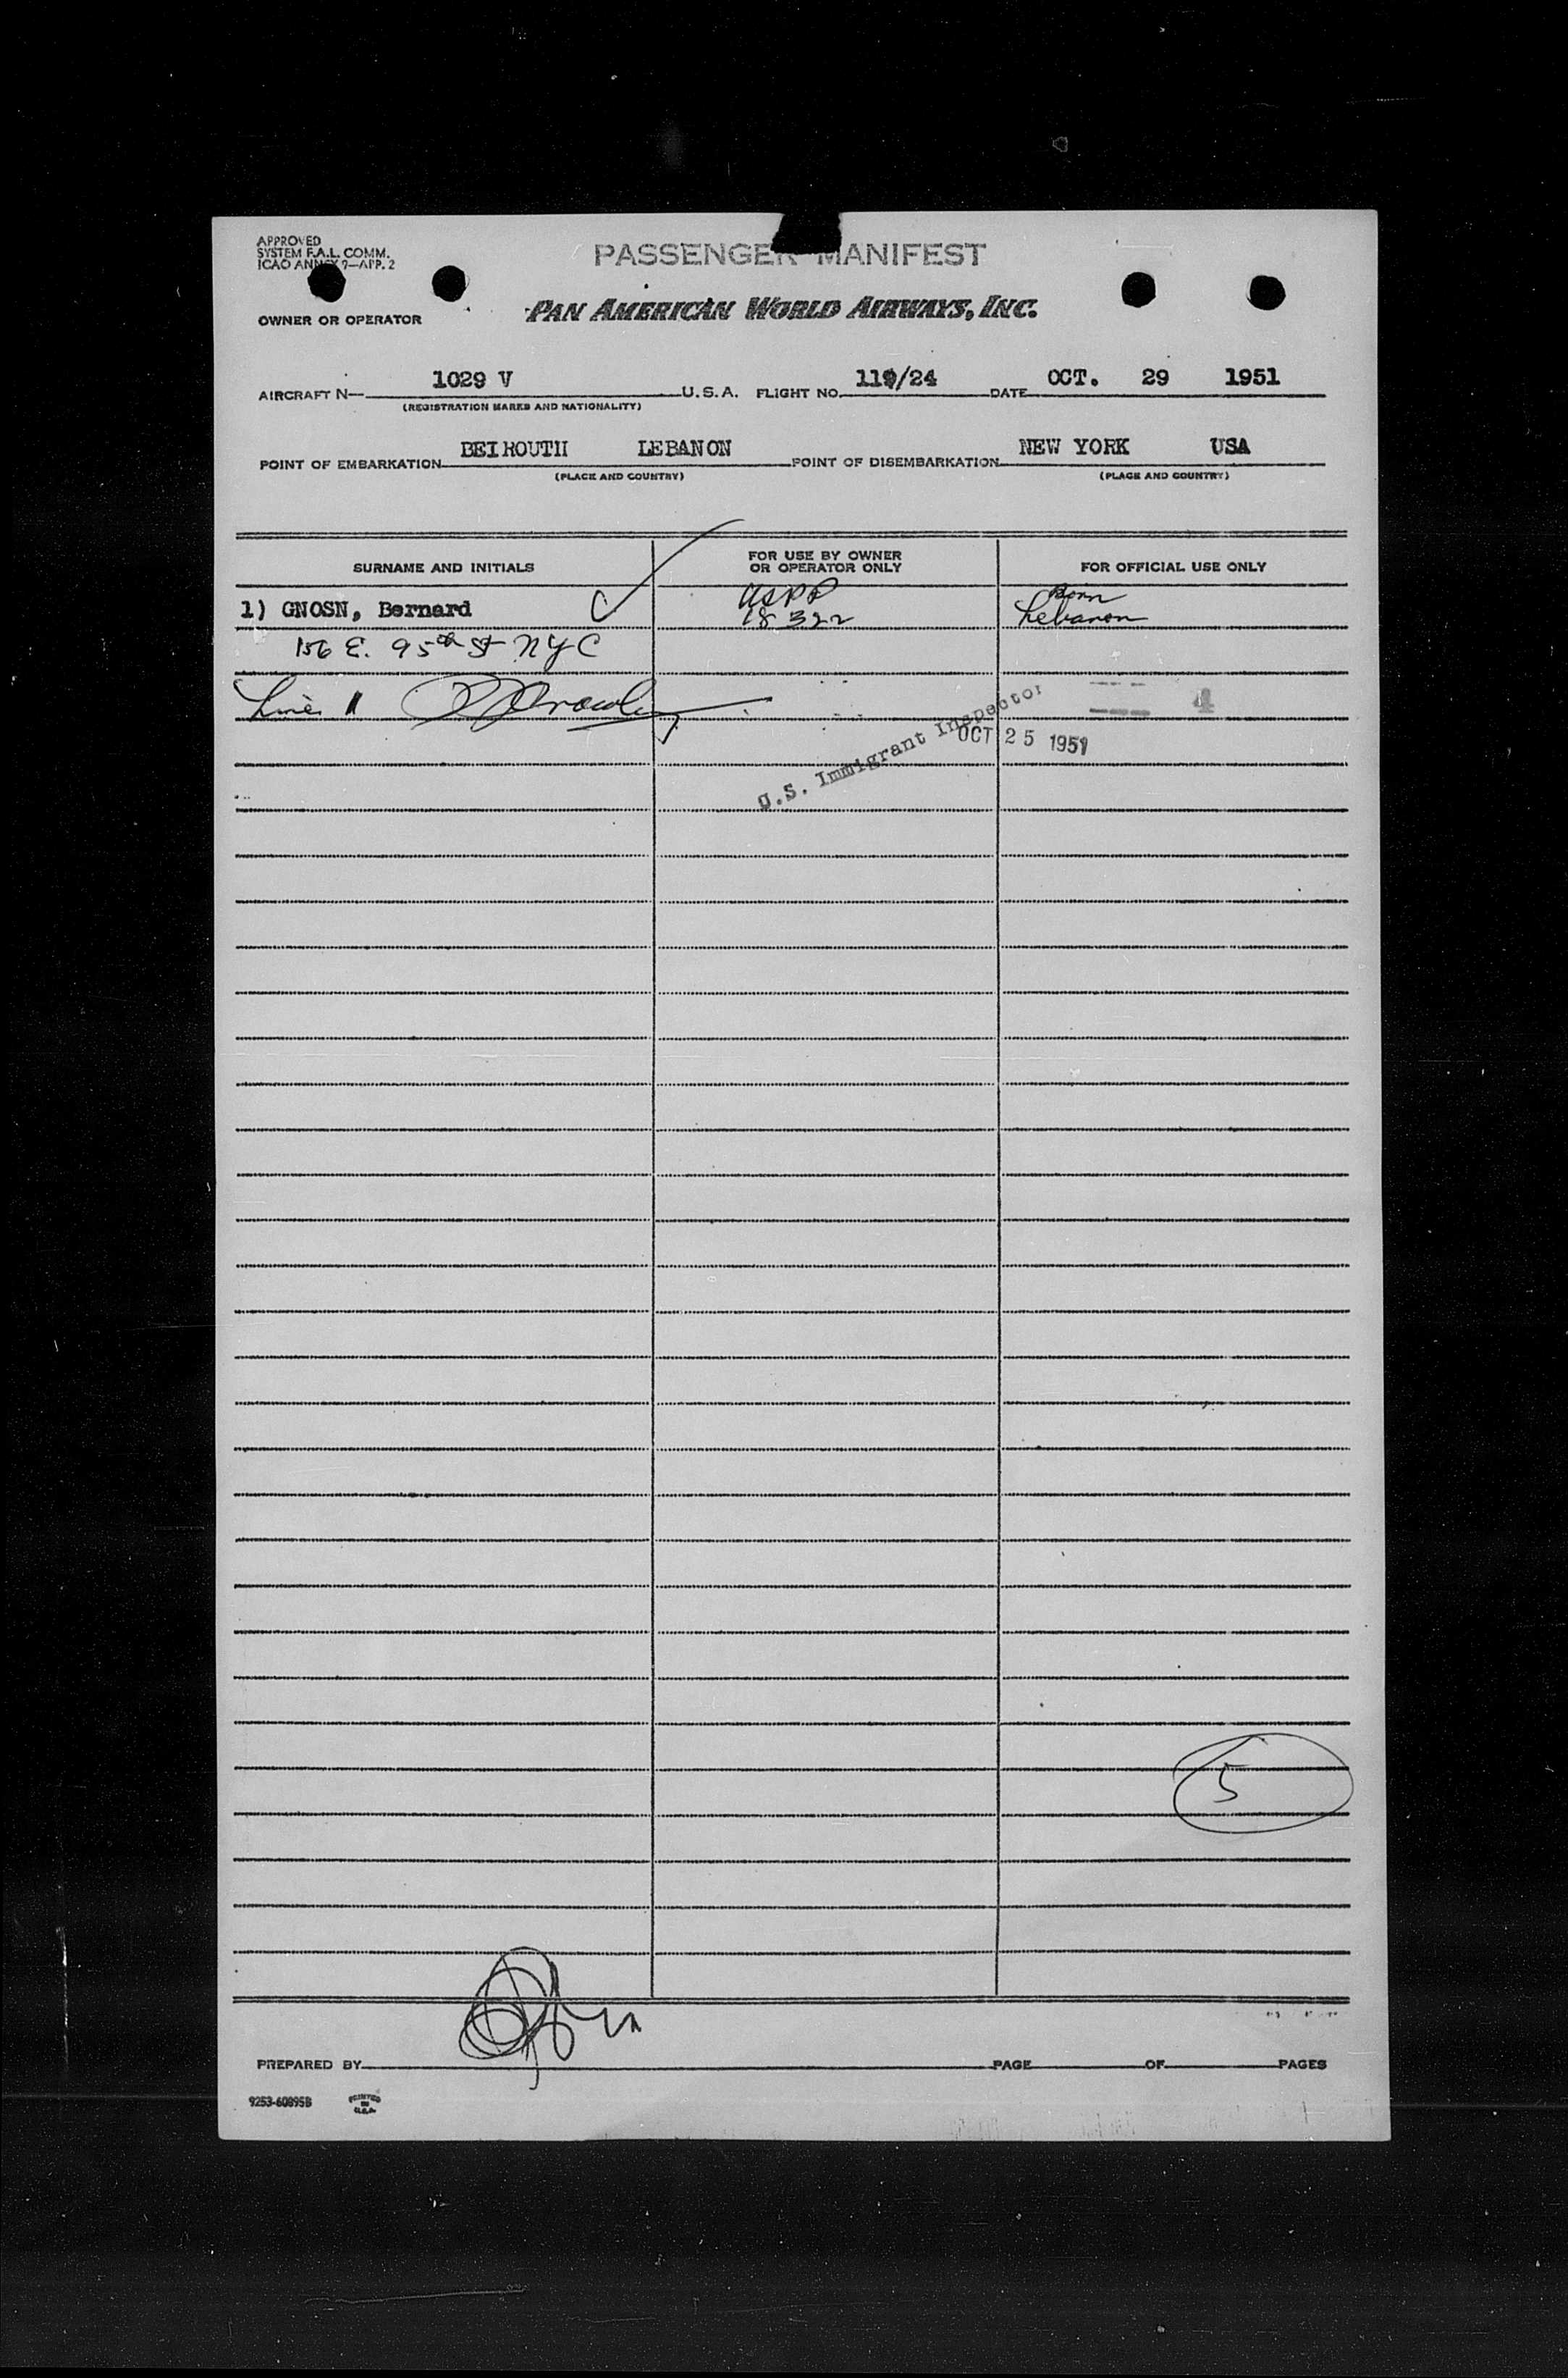 APPROVED
SYSTEM F.A.L. COMM.
ICAO ANNEX 9—APP. 2
PASSENGER MANIFEST
OWNER OR OPERATOR PAN AMERICAN WORLD AIRWAYS, INC.
AIRCRAFT N— 1029 V U.S.A. FLIGHT NO. 110/24 DATE OCT. 29 1951
(REGISTRATION MARKS AND NATIONALITY)
POINT OF EMBARKATION BEIROUTH LEBANON POINT OF DISEMBARKATION NEW YORK USA
(PLACE AND COUNTRY) (PLACE AND COUNTRY)
SURNAME AND INITIALS FOR USE BY OWNER OR OPERATOR ONLY FOR OFFICIAL USE ONLY
1) GNOSN, Bernard C USPP 18322 Born Lebanon
156 E. 95th St NYC
Line 1
4
U.S. Immigrant Inspector
OCT 25 1951
5
PREPARED BY PAGE OF PAGES
9253-60895B PRINTED IN U.S.A.